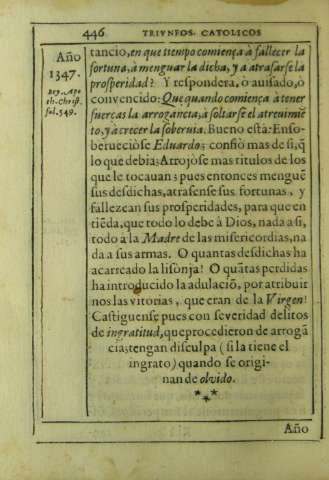 446 TRIVNFOS. CATOLICOS
Año
1347.
Bey. Apo
th. Christ.
fol. 549.
tancio, en que tiempo comiença à fallecer la
fortuna, à menguar la dicha, y a atrasarse la
prosperidad? Y respondera, ò auisado, ò
convencido: Que quando comiença à tener
fuerças la arrogancia, à soltarse el atreuimiē
to, y à crecer la soberuia. Bueno està: Enso-
berueciòse Eduardo; confiò mas de si, q̃
lo que debia; Arrojòse mas titulos de los
que le tocauan; pues entonces menguē
sus desdichas, atrasense sus fortunas, y
fallezcan sus prosperidades, para que en
tiēda, que todo lo debe à Dios, nada a si,
todo à la Madre de las misericordias, na
da a sus armas. O quantas desdichas ha
acarreado la lisonja! O quātas perdidas
ha introducido la adulaciō, por atribuir
nos las vitorias, que eran de la Virgen!
Castiguense pues con severidad delitos
de ingratitud, que procedieron de arrogā
cia; tengan disculpa (si la tiene el
ingrato) quando se origi-
nan de olvido.
Año